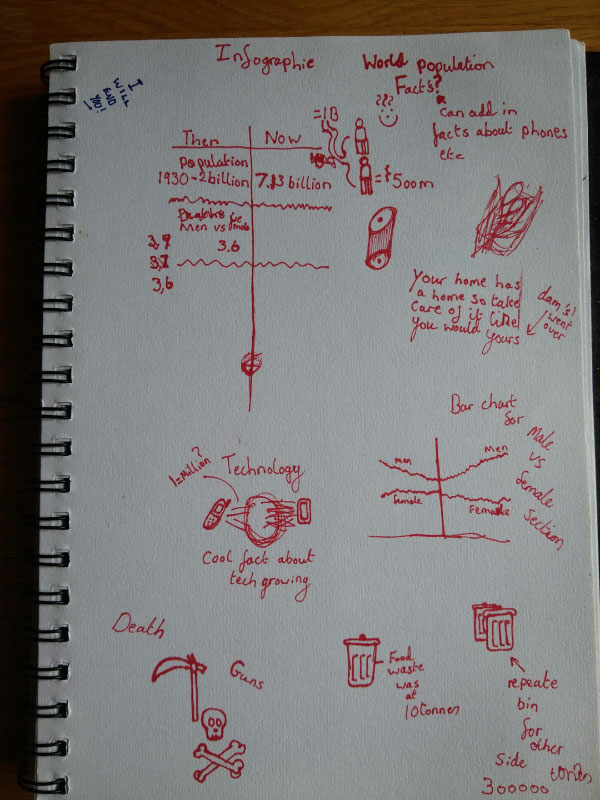 Infographic
World population
Facts?
I
WILL
END
YOU!
???
can add in
facts about phones
etc
=1B
Then
Now
population
1930-2billion
7.13 billion
=500m
Men vs
3,6
2,9
3,6
Your home has
a home so take
care of it like
you would yours
damn's!
went
over
Bar chart
for male
vs
female
section
men
Men
female
Female
1=Million?
Technology
Cool fact about
tech growing
Death
Guns
Food
waste
was
at
10tonnes
repeate
bin
for
other
side
300000